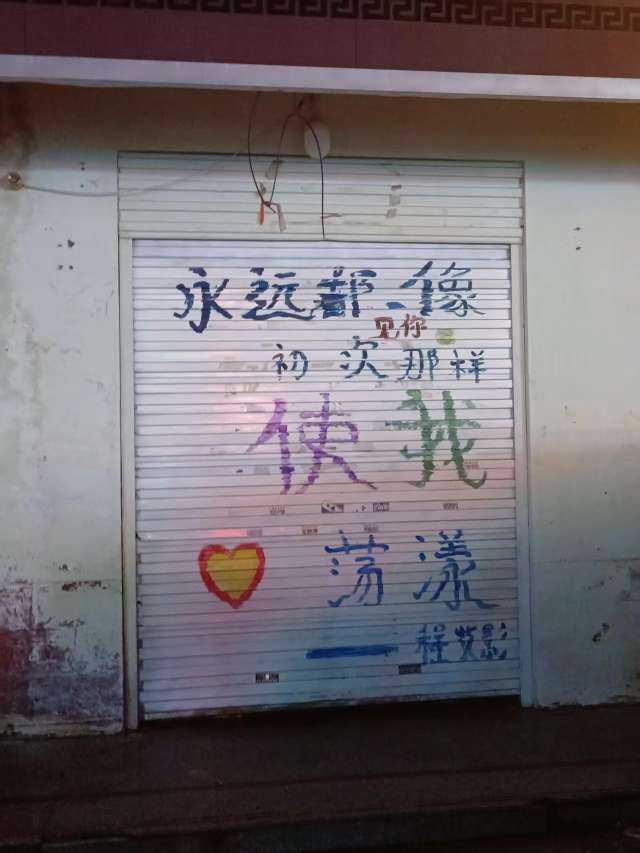 永远都像
见你
初次那样
使我
荡漾
——程艾影